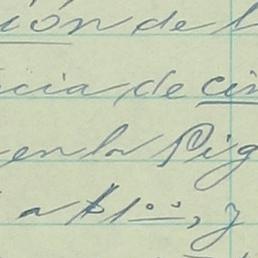 ión de l
cia, de cin
en la Pig
a $1.00, y